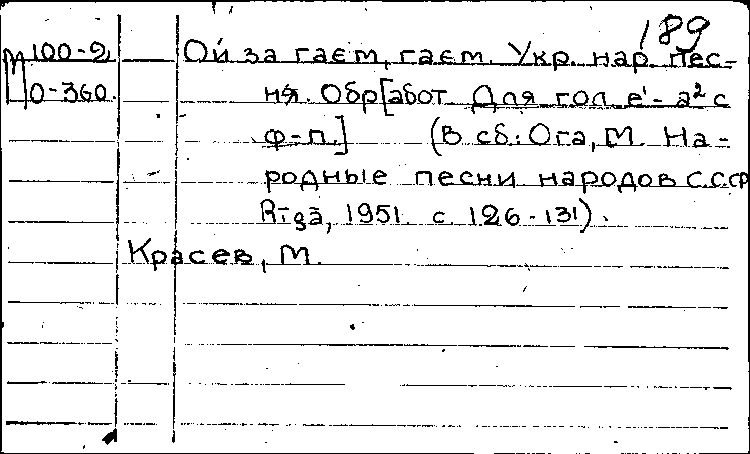 189
М 100-2 Ой за гаєм, гаєм. Укр. нар. пес-
0-360. ня. Обр[абот. Для гол. e¹-a² с
ф-п.] (В сб.: Ога, М. На-
родные песни народов С.С.С.Р
Rīgā, 1951. с. 126-131).
Красев, М.